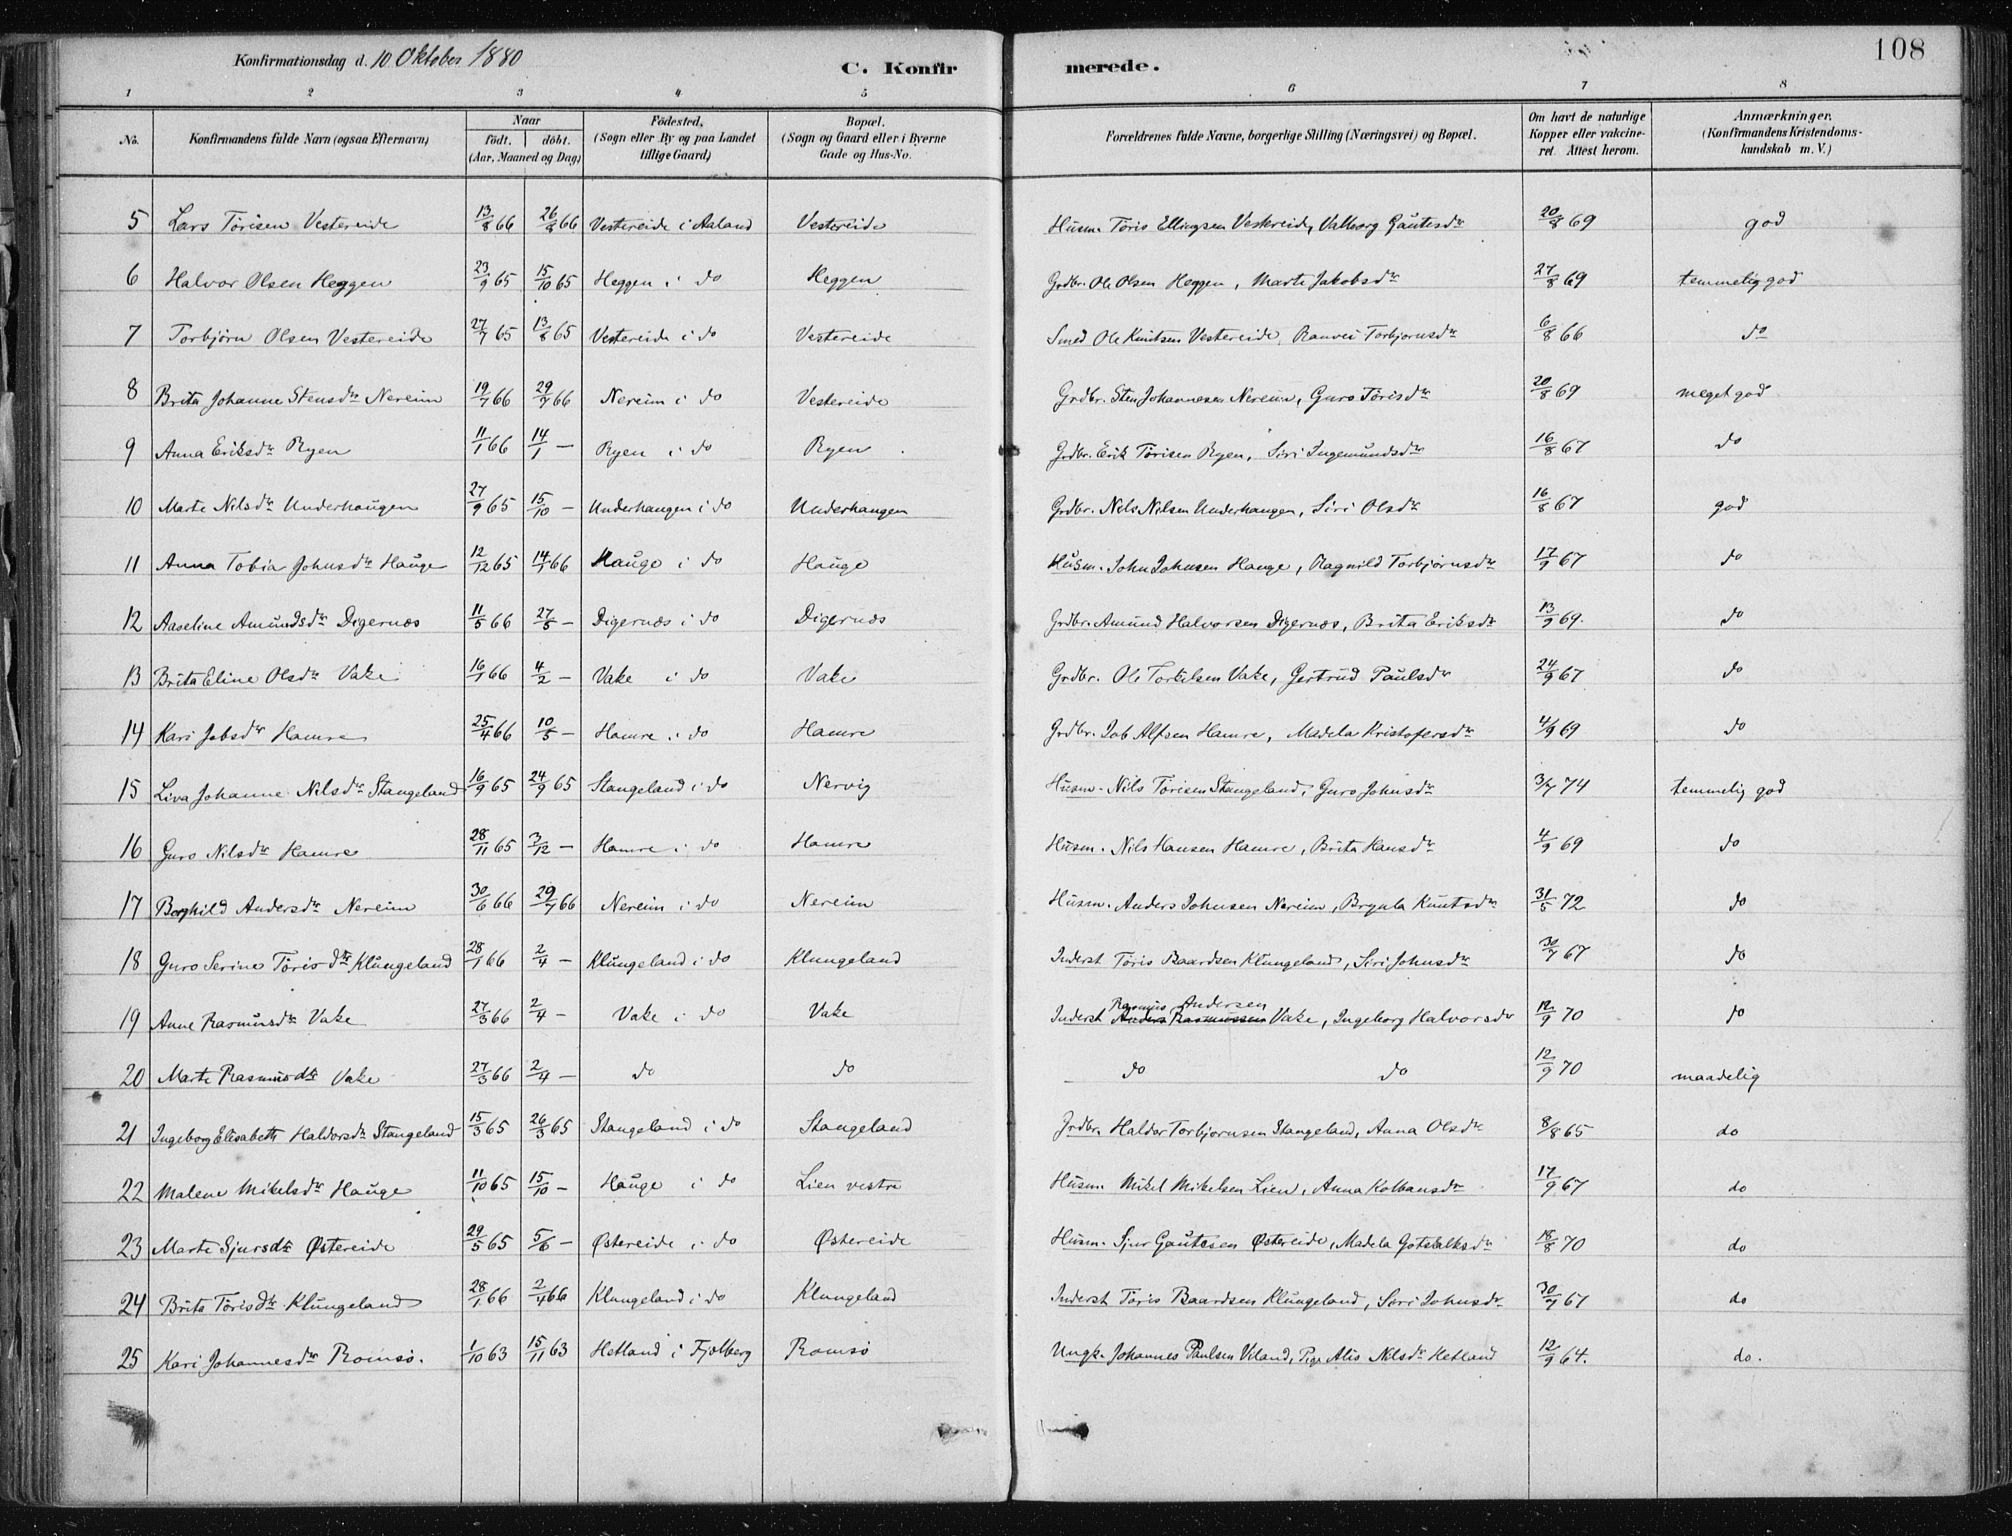 108
Konfirmationsdag d. 10 Oktober 1880
C. Konfirmerede.
1 2 3 4 5 6 7 8
No. Konfirmandens fulde Navn (ogsaa Efternavn) Naar født. døbt. (Aar, Maaned og Dag) Fødested, (Sogn eller By og paa Landet tillige Gaard) Bopæl. (Sogn og Gaard eller i Byerne Gade og Hus-No. Forældrenes fulde Navne, borgerlige Stilling (Næringsvei) og Bopæl. Om havt de naturlige Kopper eller vakcineret. Attest herom. Anmærkninger. (Konfirmandens Kristendomskundskab m. V.)
5 Lars Tørisen Vestereide 13/8 66 26/8 66 Vestereide i Aaland Vestereide Husm. Tøris Ellingsen Vestereide, Valborg Gautesdr 20/8 69 god
6 Halvor Olsen Heggen 23/9 65 15/10 65 Heggen i do Heggen Grdbr. Ole Olsen Heggen, Marte Jakobsdr 27/8 69 temmelig god
7 Torbjørn Olsen Vestereide 27/7 65 13/8 65 Vestereide i do Vestereide Smed Ole Knutsen Vestereide, Ranvei Torbjornsdr 6/8 66 do
8 Brita Johanne Stensdr Nereim 19/7 66 29/7 66 Nereim i do Vestereide Grdbr. Sten Johannesen Nereim, Guro Tørisdr 20/8 69 meget god
9 Anna Eriksdr Ryen 11/1 66 14/1 — Ryen i do Ryen Grdbr. Erik Tørisen Ryen, Siri Ingemundsdr 16/8 67 do
10 Marte Nilsdr Underhaugen 27/9 65 15/10 — Underhaugen i do Underhaugen Grdbr. Nils Nilsen Underhaugen, Siri Olsdr 16/8 67 god
11 Anna Tobia Johnsdr Hauge 12/12 65 14/1 66 Hauge i do Hauge Husm. John Johnsen Hauge, Ragnild Torbjørnsdr 17/9 67 do
12 Aaseline Amundsdr Digernæs 11/5 66 27/5 — Digernæs i do Digernæs Grdbr. Amund Halvorsen Digernæs, Brita Eriksdr 13/9 69. do
13 Brita Eline Olsdr Vake 16/1 66 4/2 — Vake i do Vake Grdbr. Ole Torkelsen Vake, Gertrud Paulsdr 24/9 67 do
14 Kari Jobsdr Hamre 25/4 66 10/5 — Hamre i do Hamre Grdbr. Job Alfsen Hamre, Madela Kristofersdr 4/9 69 do
15 Liva Johanne Nilsdr Stangeland 16/9 65 24/9 65 Stangeland i do Nervig Husm. Nils Tørisen Stangeland, Guro Johnsdr 3/7 74 temmelig god
16 Guro Nilsdr Hamre 28/11 65 3/12 — Hamre i do Hamre Husm. Nils Hansen Hamre, Brita Hansdr 4/9 69 do
17 Borghild Andersdr Nereim 30/6 66 29/7 66 Nereim i do Nereim Husm. Anders Johnsen Nereim, Brynla Knutsdr 31/5 72 do
18 Guro Serine Tørisdtr Klungeland 28/1 66 2/4 — Klungeland i do Klungeland Inderst Tøris Baardsen Klungeland, Siri Johnsdr 30/7 67 do
19 Anne Rasmusdtr Vake 27/3 66 2/4 — Vake i do Vake Inderst Rasmus Andersen Anders Rasmussen Vake, Ingeborg Halvorsdr 12/9 70 do
20 Marte Rasmusdtr Vake 27/3 66 2/4 — do do do do 12/9 70 maadelig
21 Ingeborg Elisabeth Haldorsdr Stangeland 15/3 65 26/3 65 Stangeland i do Stangeland Grdbr. Haldor Torbjornsen Stangeland, Anna Olsdr 8/8 65 do
22 Malene Mikelsdr Hauge 11/10 65 15/10 — Hauge i do Lien vestre Husm Mikel Mikelsen Lien, Anna Kolbansdr 17/9 67 do
23 Marte Sjursdtr Østereide 29/5 65 5/6 — Østereide i do Østereide Husm. Sjur Gautesen Østereide, Madela Gotskalksdr 18/8 70 do
24 Brita Tørisdtr Klungeland 28/1 66 2/4 66 Klungeland i do Klungeland Inderst Tøris Baardsen Klungeland, Siri Johnsdr 30/7 67 do
25 Kari Johannesdr Romsø. 1/10 63 15/11 63 Hetland i Fjelberg Romsø Ungk. Johannes Paulsen Viland, Pige Alis Nilsdr Hetland 12/9 64. do.